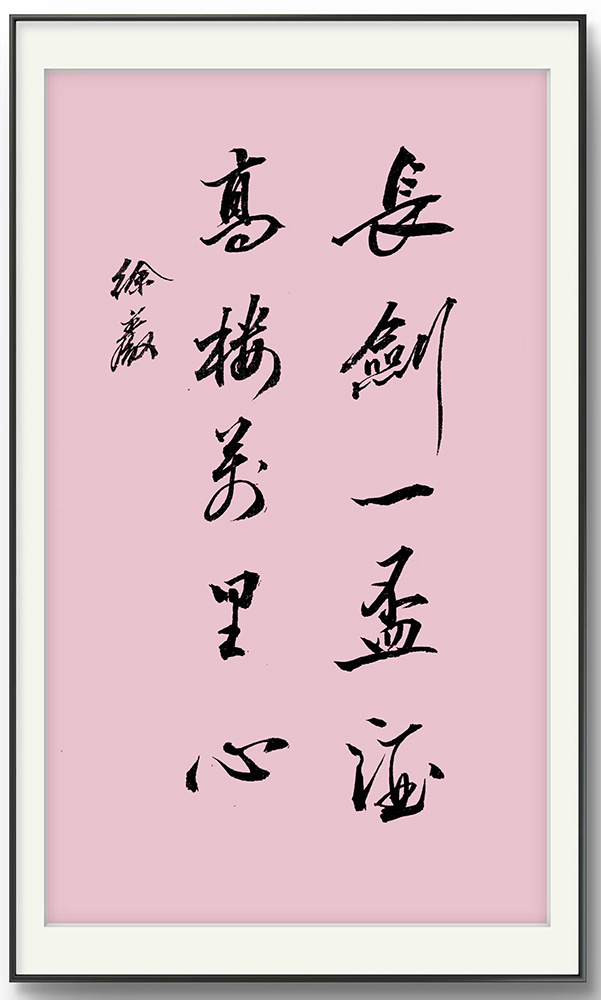 長劍一盃酒
高楼萬里心
徐嚴